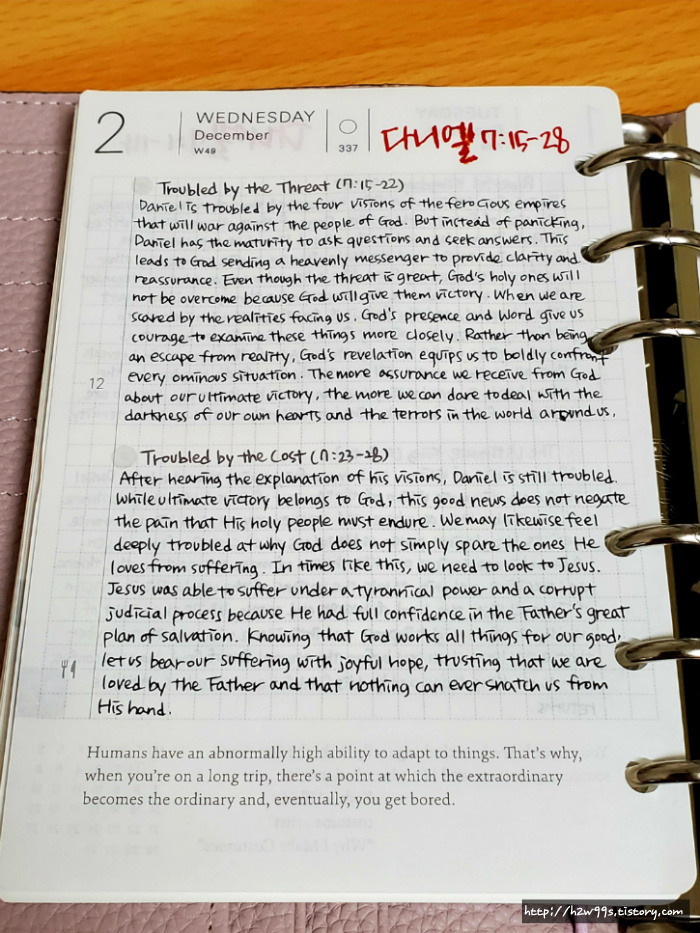 2
WEDNESDAY
December
W49
337
다니엘 7:15-28
Troubled by the Threat (7:15-22)
Daniel is troubled by the four visions of the ferocious empires
that will war against the people of God. But instead of panicking,
Daniel has the maturity to ask questions and seek answers. This
leads to God sending a heavenly messenger to provide clarity and
reassurance. Even though the threat is great, God's holy ones will
not be overcome because God will give them victory. When we are
scared by the realities facing us, God's presence and Word give us
courage to examine these things more closely. Rather than being
an escape from reality, God's revelation equips us to boldly confront
12
every ominous situation. The more assurance we receive from God
about our ultimate victory, the more we can dare to deal with the
darkness of our own hearts and the terrors in the world around us.
Troubled by the Cost (7:23-28)
After hearing the explanation of his visions, Daniel is still troubled.
While ultimate victory belongs to God, this good news does not negate
the pain that His holy people must endure. We may likewise feel
deeply troubled at why God does not simply spare the ones He
loves from suffering. In times like this, we need to look to Jesus.
Jesus was able to suffer under a tyrannical power and a corrupt
judicial process because He had full confidence in the Father's great
plan of salvation. Knowing that God works all things for our good,
let us bear our suffering with joyful hope, trusting that we are
loved by the Father and that nothing can ever snatch us from
His hand.
Humans have an abnormally high ability to adapt to things. That's why,
when you're on a long trip, there's a point at which the extraordinary
becomes the ordinary and, eventually, you get bored.
http://h2w99s.tistory.com